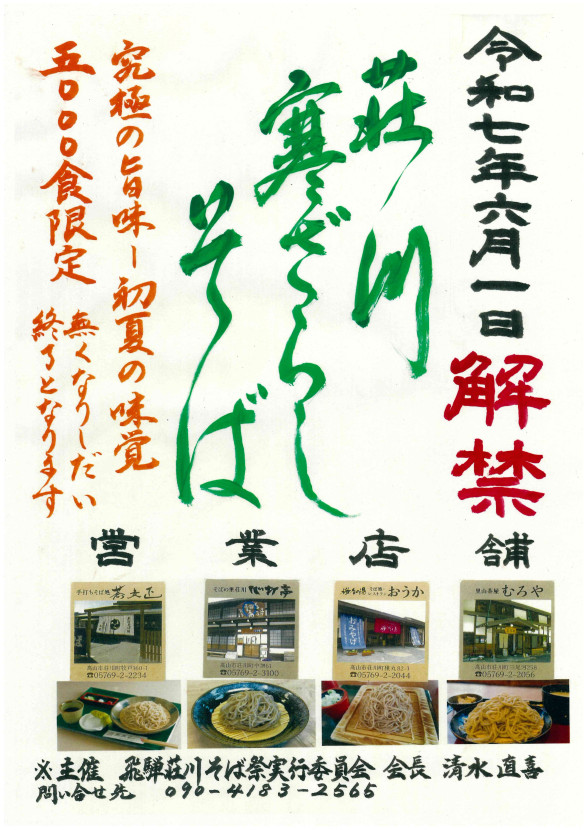 令和七年六月一日
解禁
荘川
寒ざらし
そば
究極の旨味ー初夏の味覚
五〇〇〇食限定
無くなりしだい
終了となります
営業店舗
手打ちそば処
☎05769-2-2234
そばの里荘川
心打亭
☎05769-2-3100
おうか
☎05769-2-2044
里山茶屋 むろや
☎05769-2-2056
※主催 飛騨荘川そば祭実行委員会 会長 清水直喜
問い合せ先 090-4183-2565